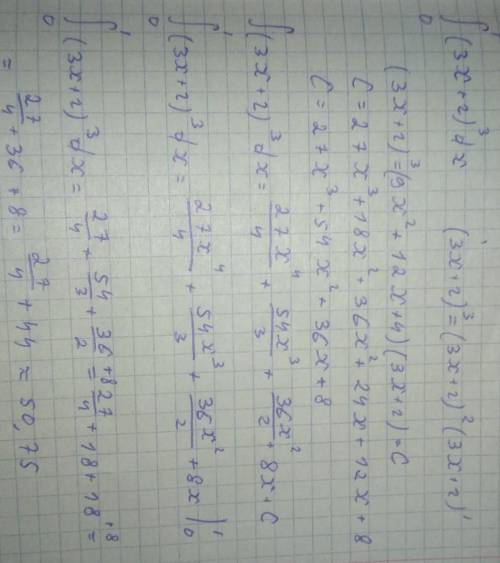 ∫₀¹ (3x+2)³dx (3x+2)³=(3x+2)²(3x+2)¹
(3x+2)³=(9x²+12x+4)(3x+2)=C
C=27x³+18x²+36x²+24x+12x+8
C=27x³+54x²+36x+8
∫(3x+2)³dx= 27x⁴/4 + 54x³/3 + 36x²/2 + 8x+C
∫₀¹ (3x+2)³dx= 27x⁴/4 + 54x³/3 + 36x²/2 + 8x |₀¹
∫₀¹ (3x+2)³dx= 27/4 + 54/3 + 36/2 +8= 27/4 +18+18+8=
= 27/4 +36+8= 27/4 +44= 50,75